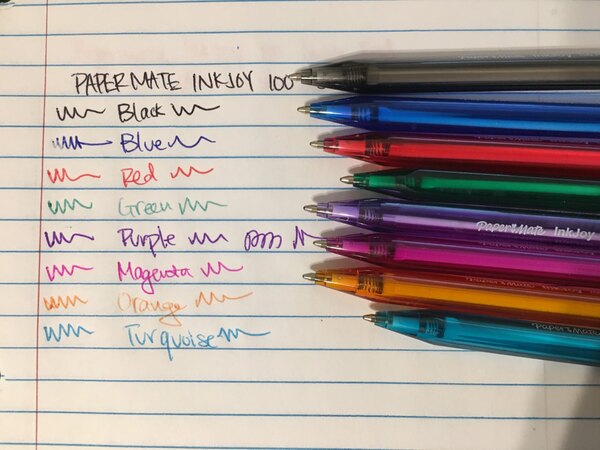 PAPERMATE INKJOY 100
Black
Blue
Red
Green
Purple
Magenta
Orange
Turquoise
Paper Mate InkJoy